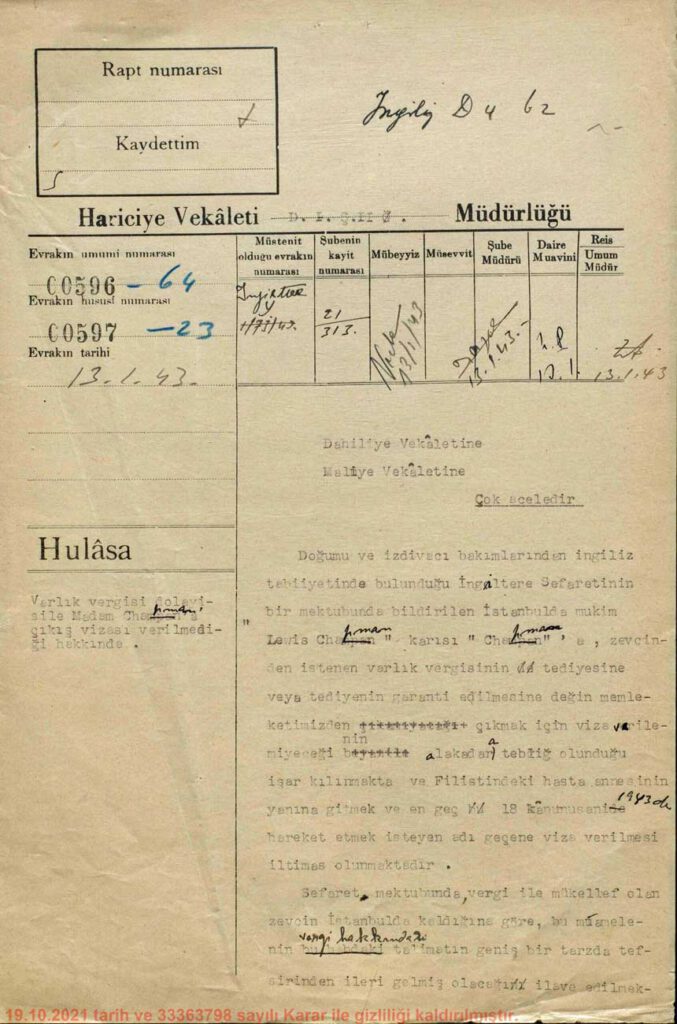 Rapt numarası
Kaydettim
Hariciye Vekâleti D. I. Ş. Müdürlüğü
Evrakın umumi numarası
00596 – 64
Evrakın hususî numarası
00597 – 23
Evrakın tarihi
13.1.43.
Müstenit olduğu evrakın numarası
Şubenin kayit numarası
Mübeyyiz
Müsevvit
Şube Müdürü
Daire Muavini
Reis
Umum Müdür
21
313.
13/1/43
13.1.43.-
13.1.
13.1.43
Dahiliye Vekâletine
Maliye Vekâletine
Çok aceledir
Hulâsa
Varlık vergisi dolayi-
sile Madam Chapman'a
çıkış vizası verilmedi-
ği hakkında .
Doğumu ve izdivacı bakımlarından ingiliz
tabiiyetinde bulunduğu İngiltere Sefaretinin
bir mektubunda bildirilen İstanbulda mukim
" Lewis Chapman " karısı " Chapman" 'a , zevcin-
den istenen varlık vergisinin tediyesine
veya tediyenin garanti edilmesine değin memle-
ketimizden çıkmak için viza verile-
miyeceğinin alakadara tebliğ olunduğu
işar kılınmakta ve Filistindeki hasta annesinin
yanına gitmek ve en geç 18 kânunusani 1943 de
hareket etmek isteyen adı geçene viza verilmesi
iltimas olunmaktadır .
Sefaret, mektubunda, vergi ile mükellef olan
zevcin İstanbulda kaldığına göre, bu müamele-
vergi hakkındaki
nin bu babdeki talimatın geniş bir tarzda tef-
sirinden ileri gelmiş olacağı ilave edilmek-
19.10.2021 tarih ve 33363798 sayılı Karar ile gizliliği kaldırılmıştır.